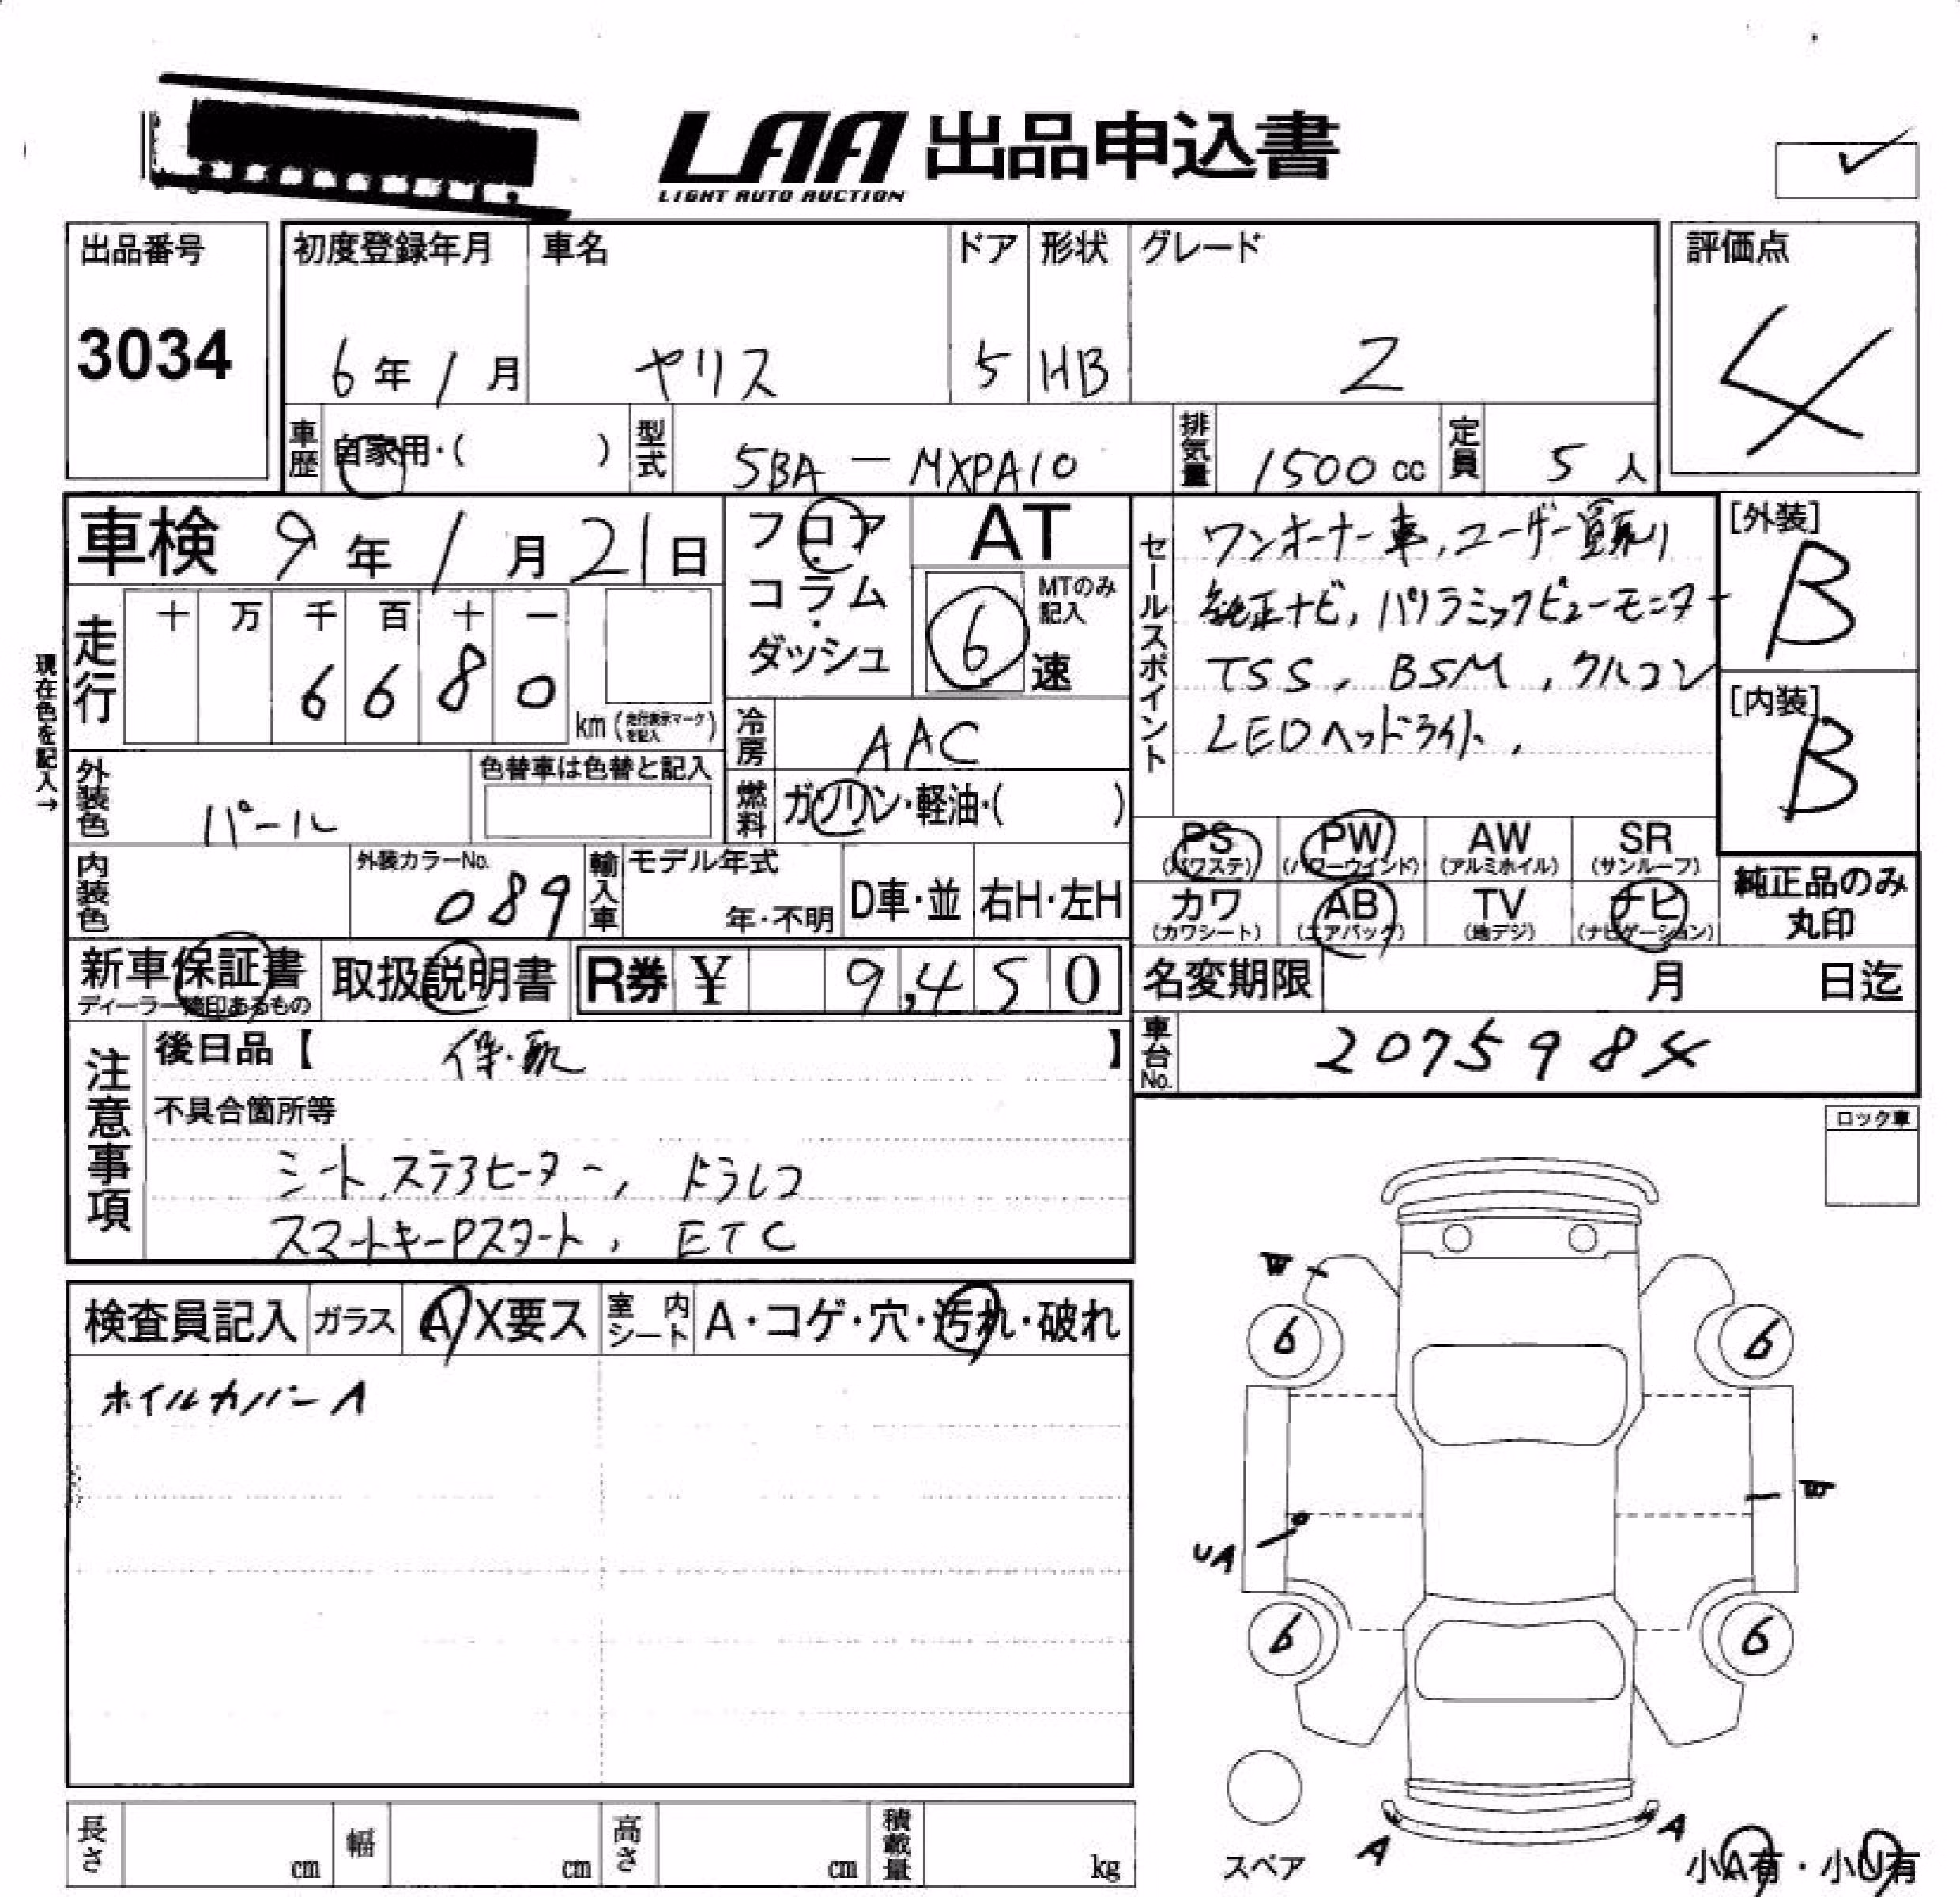 LAA 出品申込書
LIGHT AUTO AUCTION
出品番号 初度登録年月 車名 ドア 形状 グレード 評価点
3034 6年1月 ヤリス 5 HB Z 4
車歴 自家用・( ) 型式 5BA-MXPA10 排気量 1500cc 定員 5人
車検 9年1月21日 フロア・コラム・ダッシュ AT
6速 MTのみ記入
セールスポイント
ワンオーナー車, ユーザー買取り
純正ナビ, パノラミックビューモニター
TSS, BSM, クルコン
LEDヘッドライト,
[外装] B
[内装] B
現在色を記入→
走行 十 万 千 百 十 一
6 6 8 0 km (走行表示マークを記入)
冷房 AAC
外装色 パール 色替車は色替と記入
燃料 ガソリン・軽油・( )
PS (パワステ) PW (パワーウインド) AW (アルミホイル) SR (サンルーフ)
カワ (カワシート) AB (エアバック) TV (地デジ) ナビ (ナビゲーション)
純正品のみ丸印
内装色 外装カラーNo. 089 輸入車 モデル年式 年・不明 D車・並 右H・左H
新車保証書 ディーラー捺印あるもの 取扱説明書 R券 ¥ 9,450 名変期限 月 日迄
車台No. 2075984
注意事項
後日品【 保・取 】
不具合箇所等
シート,ステアヒーター, ドラレコ
スマートキーPスタート, ETC
ロック車
検査員記入 ガラス A X要ス 室内シート A・コゲ・穴・汚れ・破れ
ホイルカバーA
W
6 6
W
UA
6 6
A A
スペア
小A有・小U有
長さ cm 幅 cm 高さ cm 積載量 kg